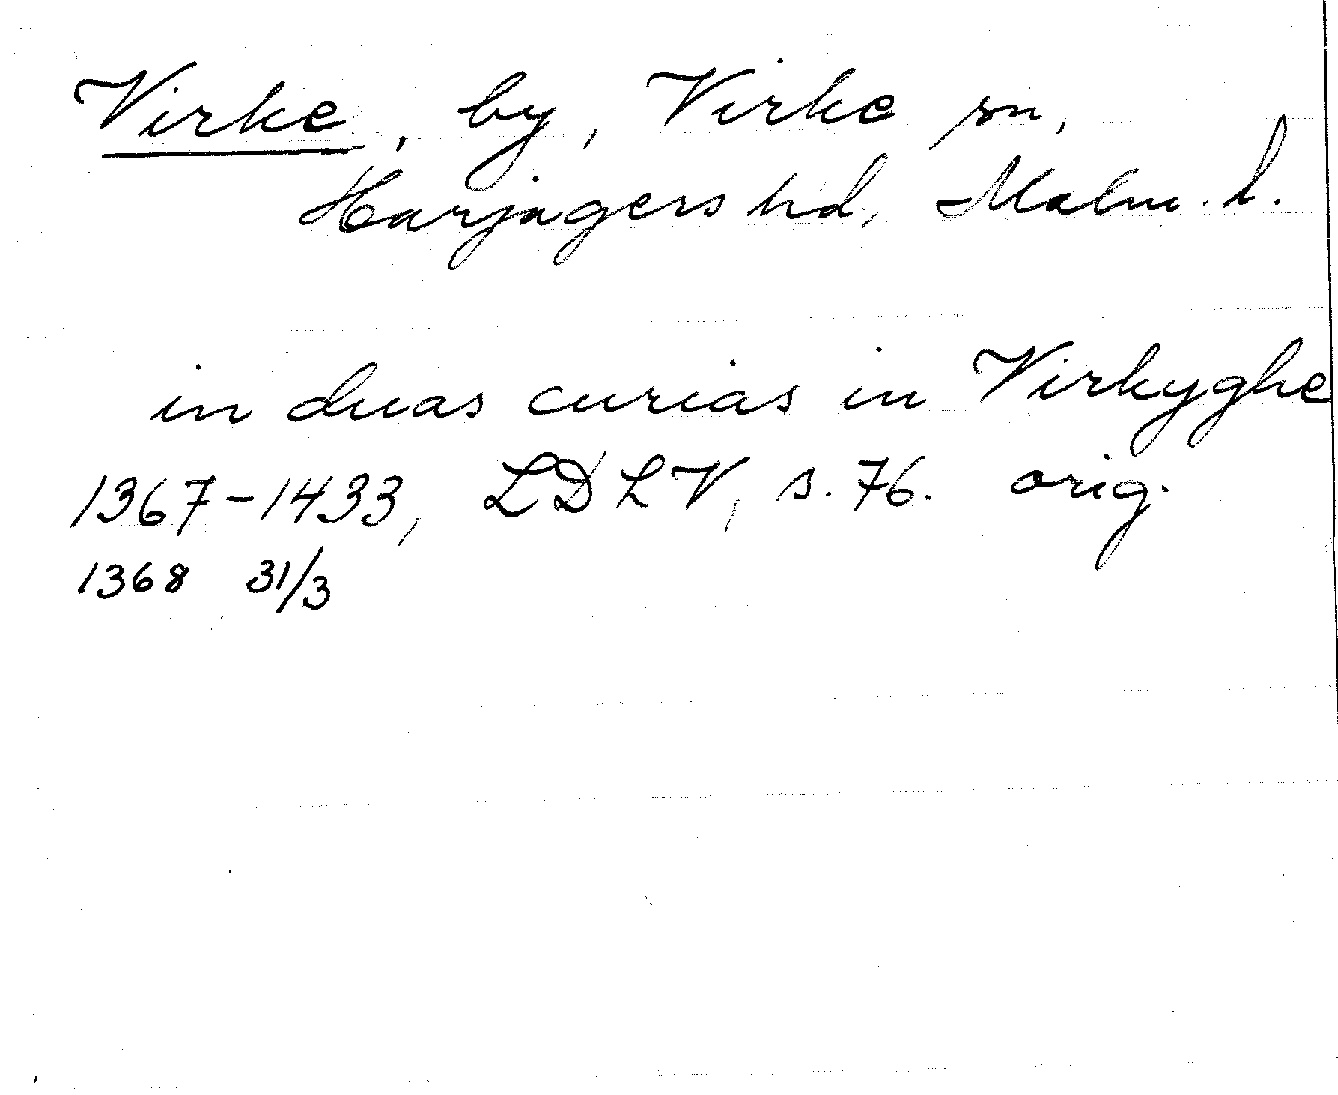 Virke, by, Virke sn,
Harjagers hd, Malm. l.
in duas curias in Virkyghe
1367-1433, LDLV, s. 76. orig.
1368 31/3